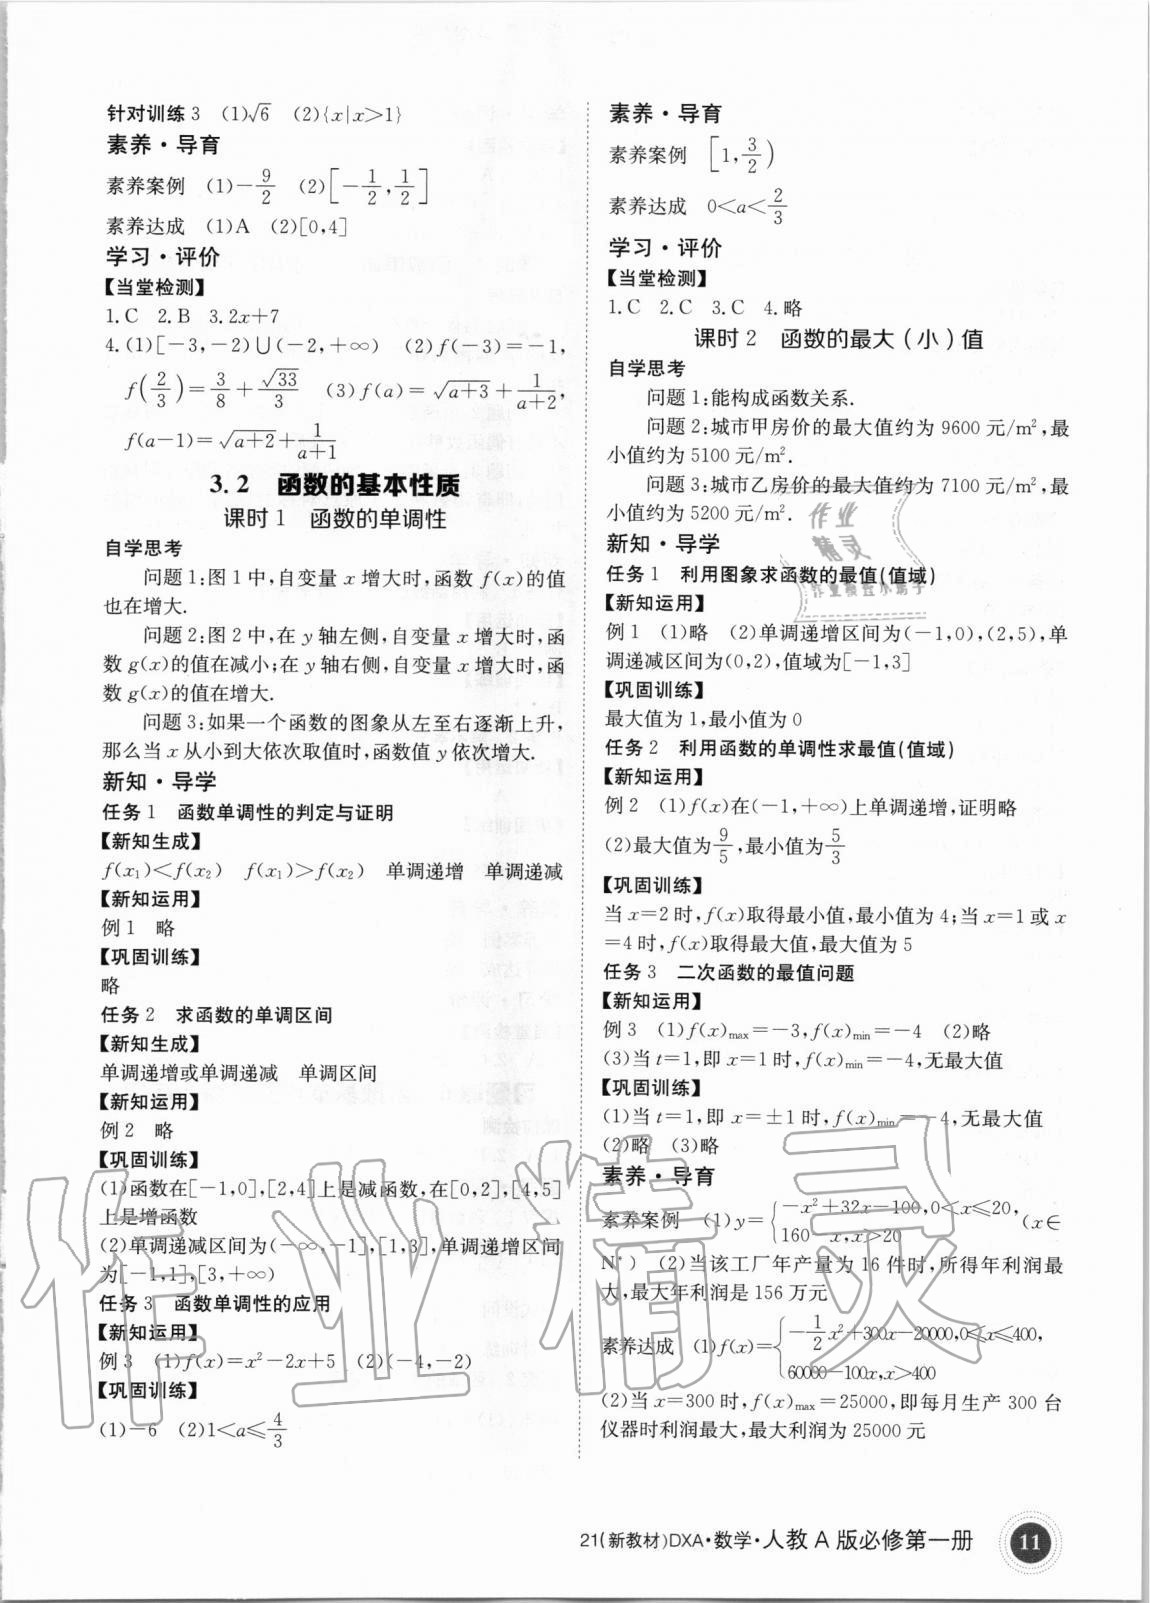 针对训练3　(1)√6　(2){x|x>1}
素养·导育
素养案例　(1)-9/2　(2)[-1/2,1/2]
素养达成　(1)A　(2)[0,4]
学习·评价
【当堂检测】
1.C　2.B　3.2x+7
4.(1)[-3,-2)∪(-2,+∞)　(2)f(-3)=-1,
f(2/3)=3/8+√33/3　(3)f(a)=√(a+3)+1/(a+2),
f(a-1)=√(a+2)+1/(a+1)
3.2　函数的基本性质
课时1　函数的单调性
自学思考
问题1:图1中,自变量x增大时,函数f(x)的值
也在增大.
问题2:图2中,在y轴左侧,自变量x增大时,函
数g(x)的值在减小;在y轴右侧,自变量x增大时,函
数g(x)的值在增大.
问题3:如果一个函数的图象从左至右逐渐上升,
那么当x从小到大依次取值时,函数值y依次增大.
新知·导学
任务1　函数单调性的判定与证明
【新知生成】
f(x₁)<f(x₂)　f(x₁)>f(x₂)　单调递增　单调递减
【新知运用】
例1　略
【巩固训练】
略
任务2　求函数的单调区间
【新知生成】
单调递增或单调递减　单调区间
【新知运用】
例2　略
【巩固训练】
(1)函数在[-1,0],[2,4]上是减函数,在[0,2],[4,5]
上是增函数
(2)单调递减区间为(-∞,-1],[1,3],单调递增区间
为[-1,1],[3,+∞)
任务3　函数单调性的应用
【新知运用】
例3　(1)f(x)=x²-2x+5　(2)(-4,-2)
【巩固训练】
(1)-6　(2)1<a≤4/3
素养·导育
素养案例　[1,3/2)
素养达成　0<a<2/3
学习·评价
【当堂检测】
1.C　2.C　3.C　4.略
课时2　函数的最大(小)值
自学思考
问题1:能构成函数关系.
问题2:城市甲房价的最大值约为9600元/m²,最
小值约为5100元/m².
问题3:城市乙房价的最大值约为7100元/m²,最
小值约为5200元/m².
作业
精灵
作业精灵小助手
新知·导学
任务1　利用图象求函数的最值(值域)
【新知运用】
例1　(1)略　(2)单调递增区间为(-1,0),(2,5),单
调递减区间为(0,2),值域为[-1,3]
【巩固训练】
最大值为1,最小值为0
任务2　利用函数的单调性求最值(值域)
【新知运用】
例2　(1)f(x)在(-1,+∞)上单调递增,证明略
(2)最大值为9/5,最小值为5/3
【巩固训练】
当x=2时,f(x)取得最小值,最小值为4;当x=1或x
=4时,f(x)取得最大值,最大值为5
任务3　二次函数的最值问题
【新知运用】
例3　(1)f(x)max=-3,f(x)min=-4　(2)略
(3)当t=1,即x=1时,f(x)min=-4,无最大值
【巩固训练】
(1)当t=1,即x=±1时,f(x)min=-4,无最大值
(2)略　(3)略
素养·导育
素养案例　(1)y={-x²+32x-100,0<x≤20,
160-x,x>20　(x∈
N*)　(2)当该工厂年产量为16件时,所得年利润最
大,最大年利润是156万元
素养达成　(1)f(x)={-1/2x²+300x-20000,0≤x≤400,
60000-100x,x>400
(2)当x=300时,f(x)max=25000,即每月生产300台
仪器时利润最大,最大利润为25000元
作业精灵
21(新教材)DXA·数学·人教A版必修第一册　11